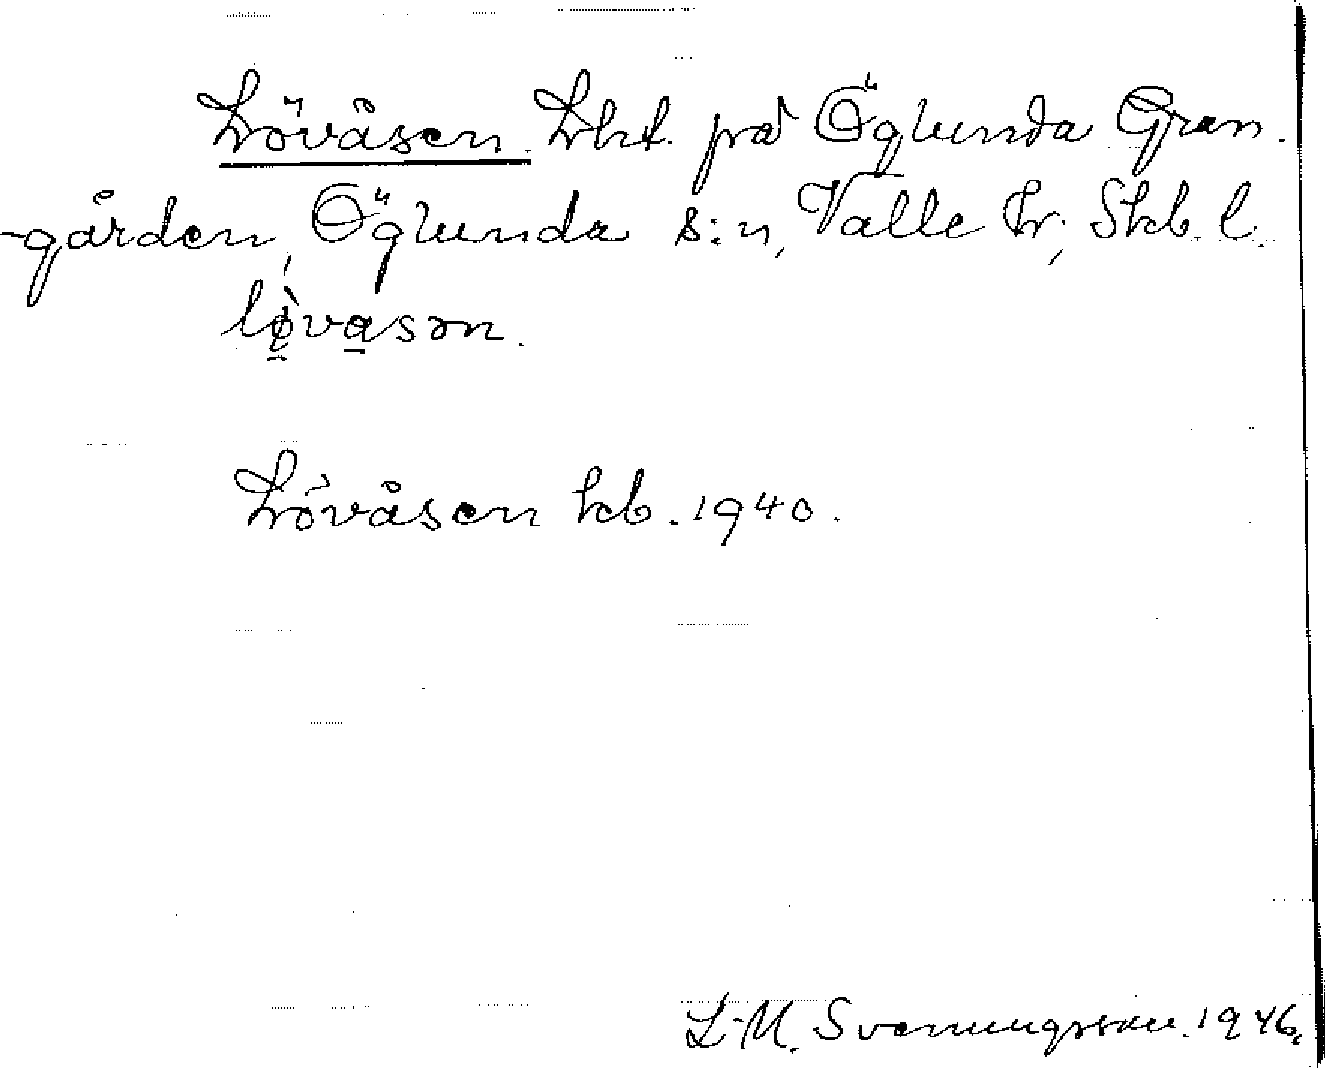 Lövåsen. Lht. på Öglunda Gran-
-gården, Öglunda s:n, Valle hr, Skb. l.
lø̀vasən.
Lövåsen kb. 1940.
L-M. Svenungsson. 1946.